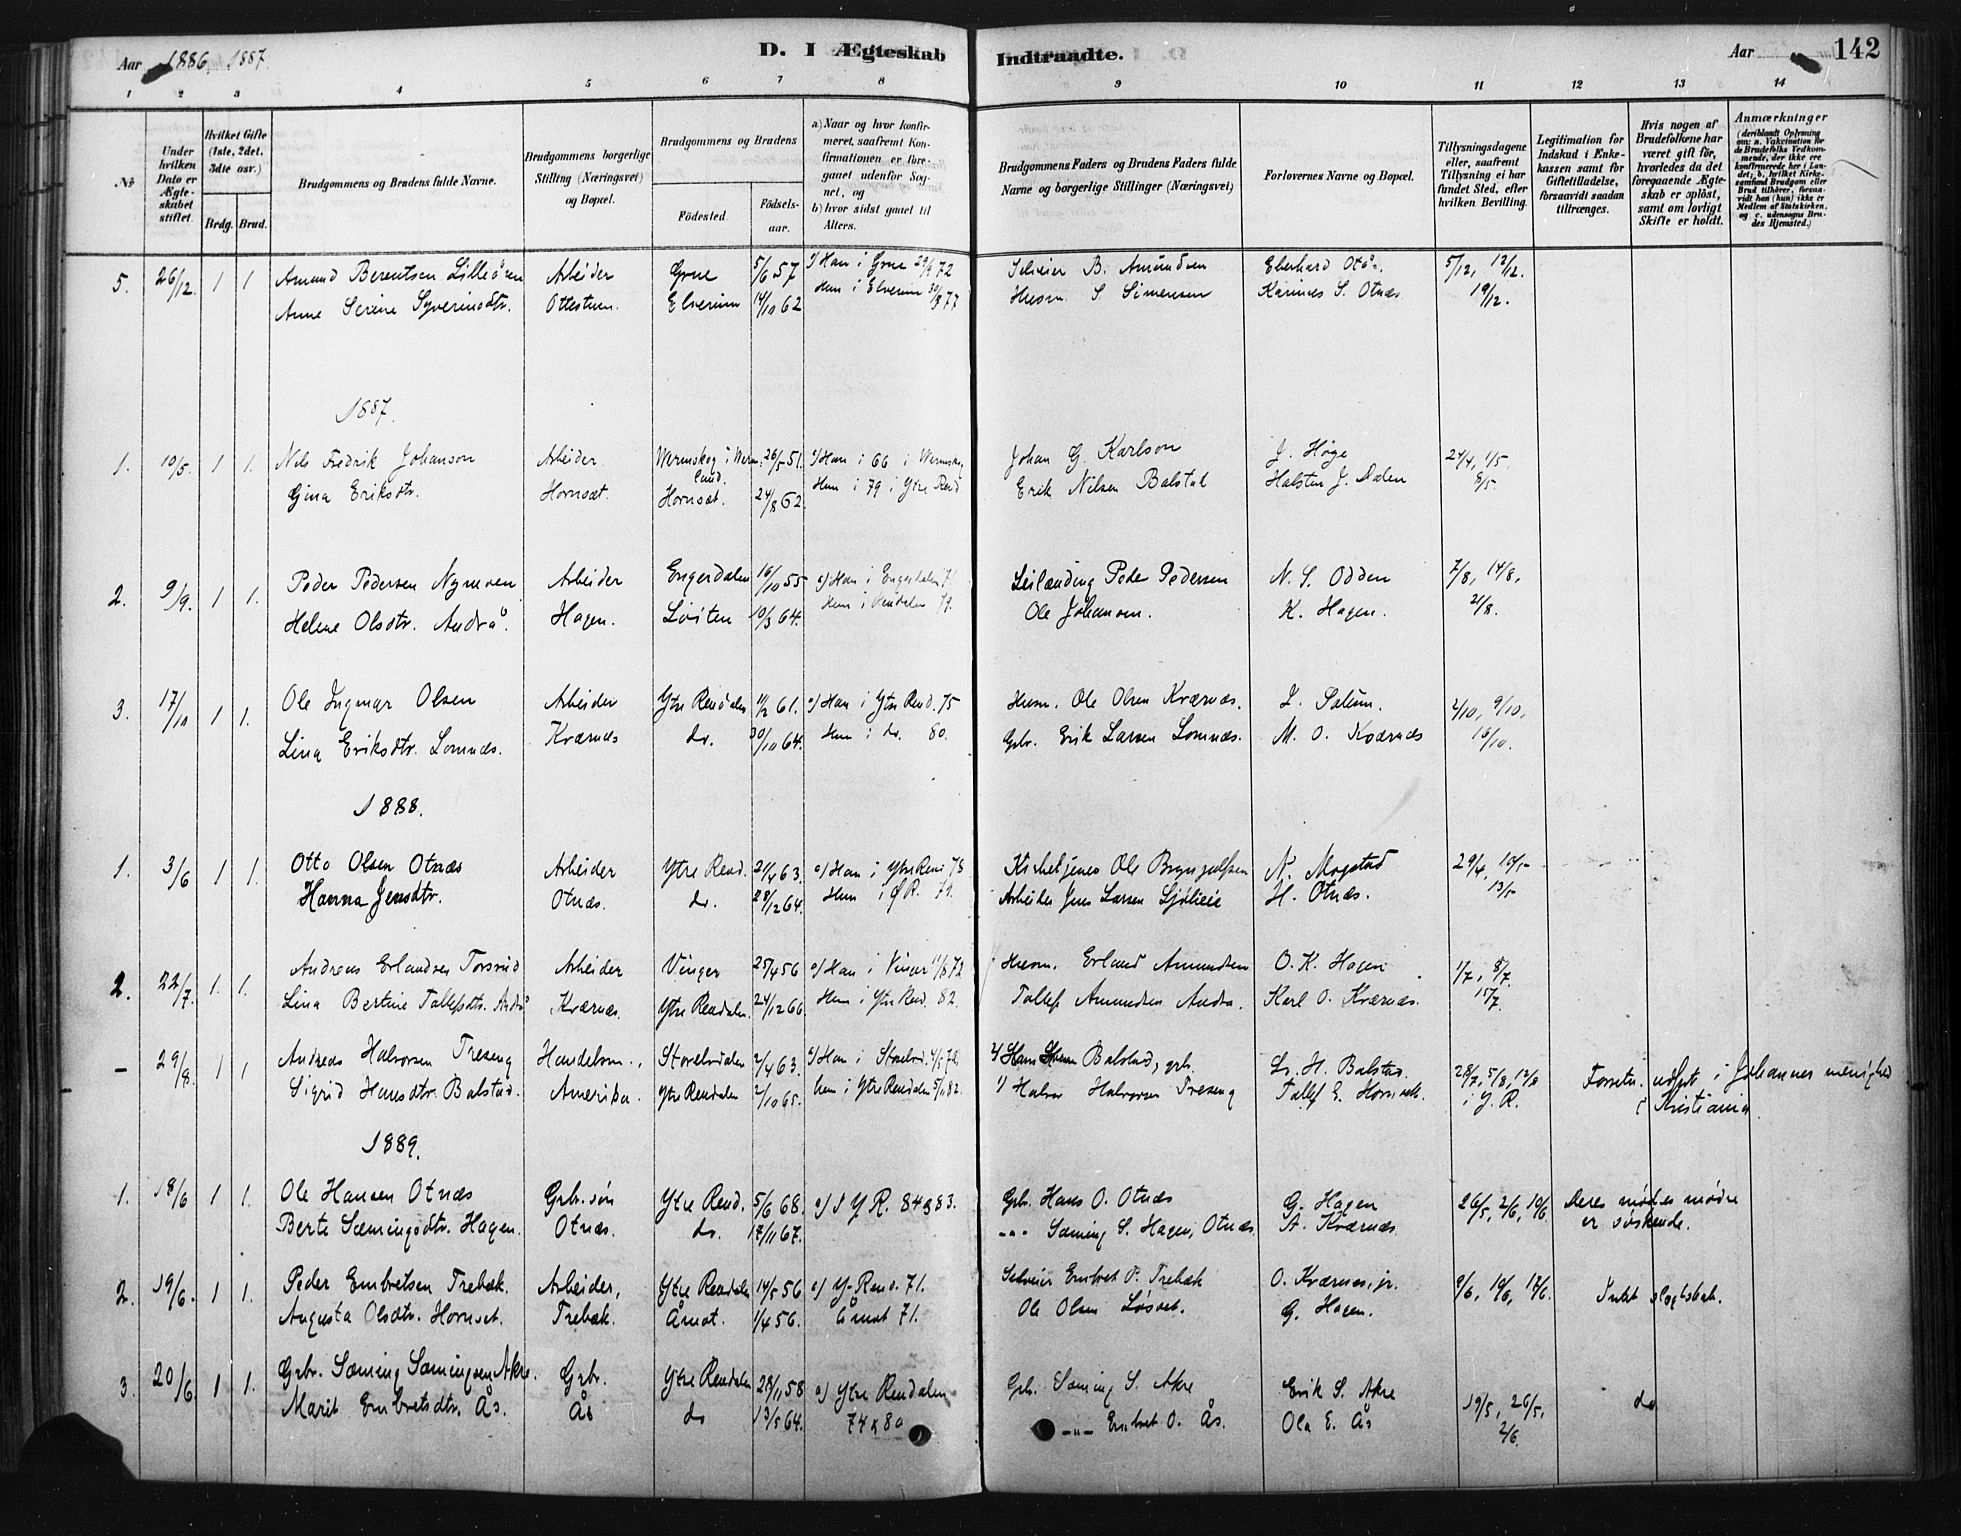 Aar 1886, 1887
D. I Ægteskab Indtraadte.
Aar 142
1 2 3 4 5 6 7 8 9 10 11 12 13 14
No.
Under hvilken Dato er Ægteskabet stiftet.
Hvilket Gifte (1ste, 2det, 3die osv.)
Brdg. Brud.
Brudgommens og Brudens fulde Navne.
Brudgommens borgerlige Stilling (Næringsvei) og Bopæl.
Brudgommens og Brudens
Fødested.
Fødselsaar.
a) Naar og hvor konfirmeret, saafremt Konfirmationen er foregaaet udenfor Sognet, og
b) hvor sidst gaaet til Alters.
Brudgommens Faders og Brudens Faders fulde Navne og borgerlige Stillinger (Næringsvei)
Forlovernes Navne og Bopæl.
Tillysningsdagene eller, saafremt Tillysning ei har fundet Sted, efter hvilken Bevilling.
Legitimation for Indskud i Enkekassen samt for Giftetilladelse, forsaavidt saadan tiltrænges.
Hvis nogen af Brudefolkene har været gift før, hvorledes da det foregaaende Ægteskab er opløst, samt om lovligt Skifte er holdt.
Anmærkninger
(deriblandt Oplysning om: a. Vakcination for de Brudefolks Vedkommende, der ikke ere konfirmerede her i Landet; b. hvilket Kirkesamfund Brudgom eller Brud tilhører, forsaavidt han (hun) ikke er Medlem af Statskirken, og c. udensogns Brudes Hjemsted.)
5. 26/12. 1 1 Amund Berentsen Lilleören Arbeider Grue 5/6 57 Han i Grue 29/9 72 Selveier B. Amundsen Eberhard Otö.. 5/12, 12/12.
Anne Serine Syverinsdtr. Ottestuen. Elverum 14/10 62 Hun i Elverum 30/9 77 Husm. S. Simensen Karinus S. Otnæs 19/12.
1887.
1. 10/5. 1 1. Nils Fredrik Johanson Arbeider Wermskog i Wermland. 26/5 51. a) Han i 66 i Wermskog Johan G. Karlson J. Høye 24/4, 1/5.
Gina Eriksdtr. Hornset. Hornset. 24/8 62. Hun i 79 i Ytre Rend Erik Nilsen Balstad Halsten J. Dalen 8/5.
2. 9/9. 1 1. Peder Pedersen Nymoen Arbeider Engerdalen 16/10 55 a) Han i Engerdalen 71 Leilænding Peder Pedersen N. S. Odden 7/8, 14/8,
Helene Olsdtr. Andrå. Hagen. Löiten 10/3 64. Hun i Rendalen 79. Ole Johansen. K. Hagen. 21/8.
3. 17/10 1 1. Ole Ingmar Olsen Arbeider Ytre Rendalen 11/2 61. a) Han i Ytre Rend. 75 Husm. Ole Olsen Kværnæs. L. Salum. 2/10, 9/10,
Lina Eriksdtr. Lomnæs. Kværnæs do. 30/10 64. Hun i do. 80. Gbr. Erik Larsen Lomnæs. M. O. Kværnæs 16/10.
1888.
1. 3/6 1 1. Otto Olsen Otnæs Arbeider Ytre Rend. 21/4 63. a) Han i Ytre Rend 78 Kirketjener Ole Bryngelssen N. Mogstad 29/4, 10/5
Hanna Jensdtr. Otnæs. do. 28/12 64. Hun i Ø R. 79. Arbeider Jens Larsen Sjölieie H. Otnæs. 13/5
2. 22/7. 1. 1. Andreas Erlandsen Torsrud Arbeider Vinger 25/4 56 a) Han i Vinger 11/8 72 Husm. Erland Amundsen O. K. Hagen 1/7, 8/7.
Lina Bertine Tollefsdtr. Andrå Kværnæs. Ytre Rendalen. 24/12 66 Hun i Ytre Rend. 82. Tollef Amundsen Andrå. Karl O. Kværnæs. 15/7.
- 29/8. 1 1 Andreas Halvorsen Treseng Handelsm., Storelvdalen 2/4 63. a) Han i Storelvd. 4/5 78. 2/ Hans Balstad, gbr. L. H. Balstad. 28/7, 5/8, 12/8 Forretn. udført i Johannes menighed
Sigrid Hansdtr. Balstad. Amerika. Ytre Rendalen 2/10 65. hun i Ytre Rendalen 5/11 82. 1/ Halvor Halvorsen Treseng Tollef E. Hornset. i Y. R. i Kristiania.
1889.
1. 18/6 1 1. Ole Hansen Otnæs Grb. søn Ytre Rend. 5/6 68. a) I Y R. 84 & 83. Grb. Hans O. Otnæs G. Hagen 26/5, 2/6, 10/6. Deres mødres mødre
Berte Sæmingsdtr. Hagen. Otnæs. do. 17/11 67. -"- Sæming S. Hagen, Otnæs A. Kværnæs. er søskende.
2. 19/6. 1 1. Peder Embretsen Trebæk. Arbeider, Ytre Rendalen 14/5 56 a) Y. Rend. 71. Selveier Embret P. Trebæk O. Kværnes, jr. 9/6, 10/6, 17/6. Intet slegtskab.
Augusta Olsdtr. Hornset. Trebæk. Åmot. 1/4 56. Åmot 71. Ole Olsen Løsset. G. Hagen.
3. 20/6 1 1. Grbr. Sæming Sæmingsen Akre. Grbr. Ytre Rendalen 28/11 58 a) Ytre Rendalen Grb. Sæming S. Akre Erik S. Akre 19/5, 26/5, do
Marit Embretsdtr. Ås. Ås do 13/5 64. 74 & 80 -"- Embret O. Ås. Ola E. Ås 2/6.